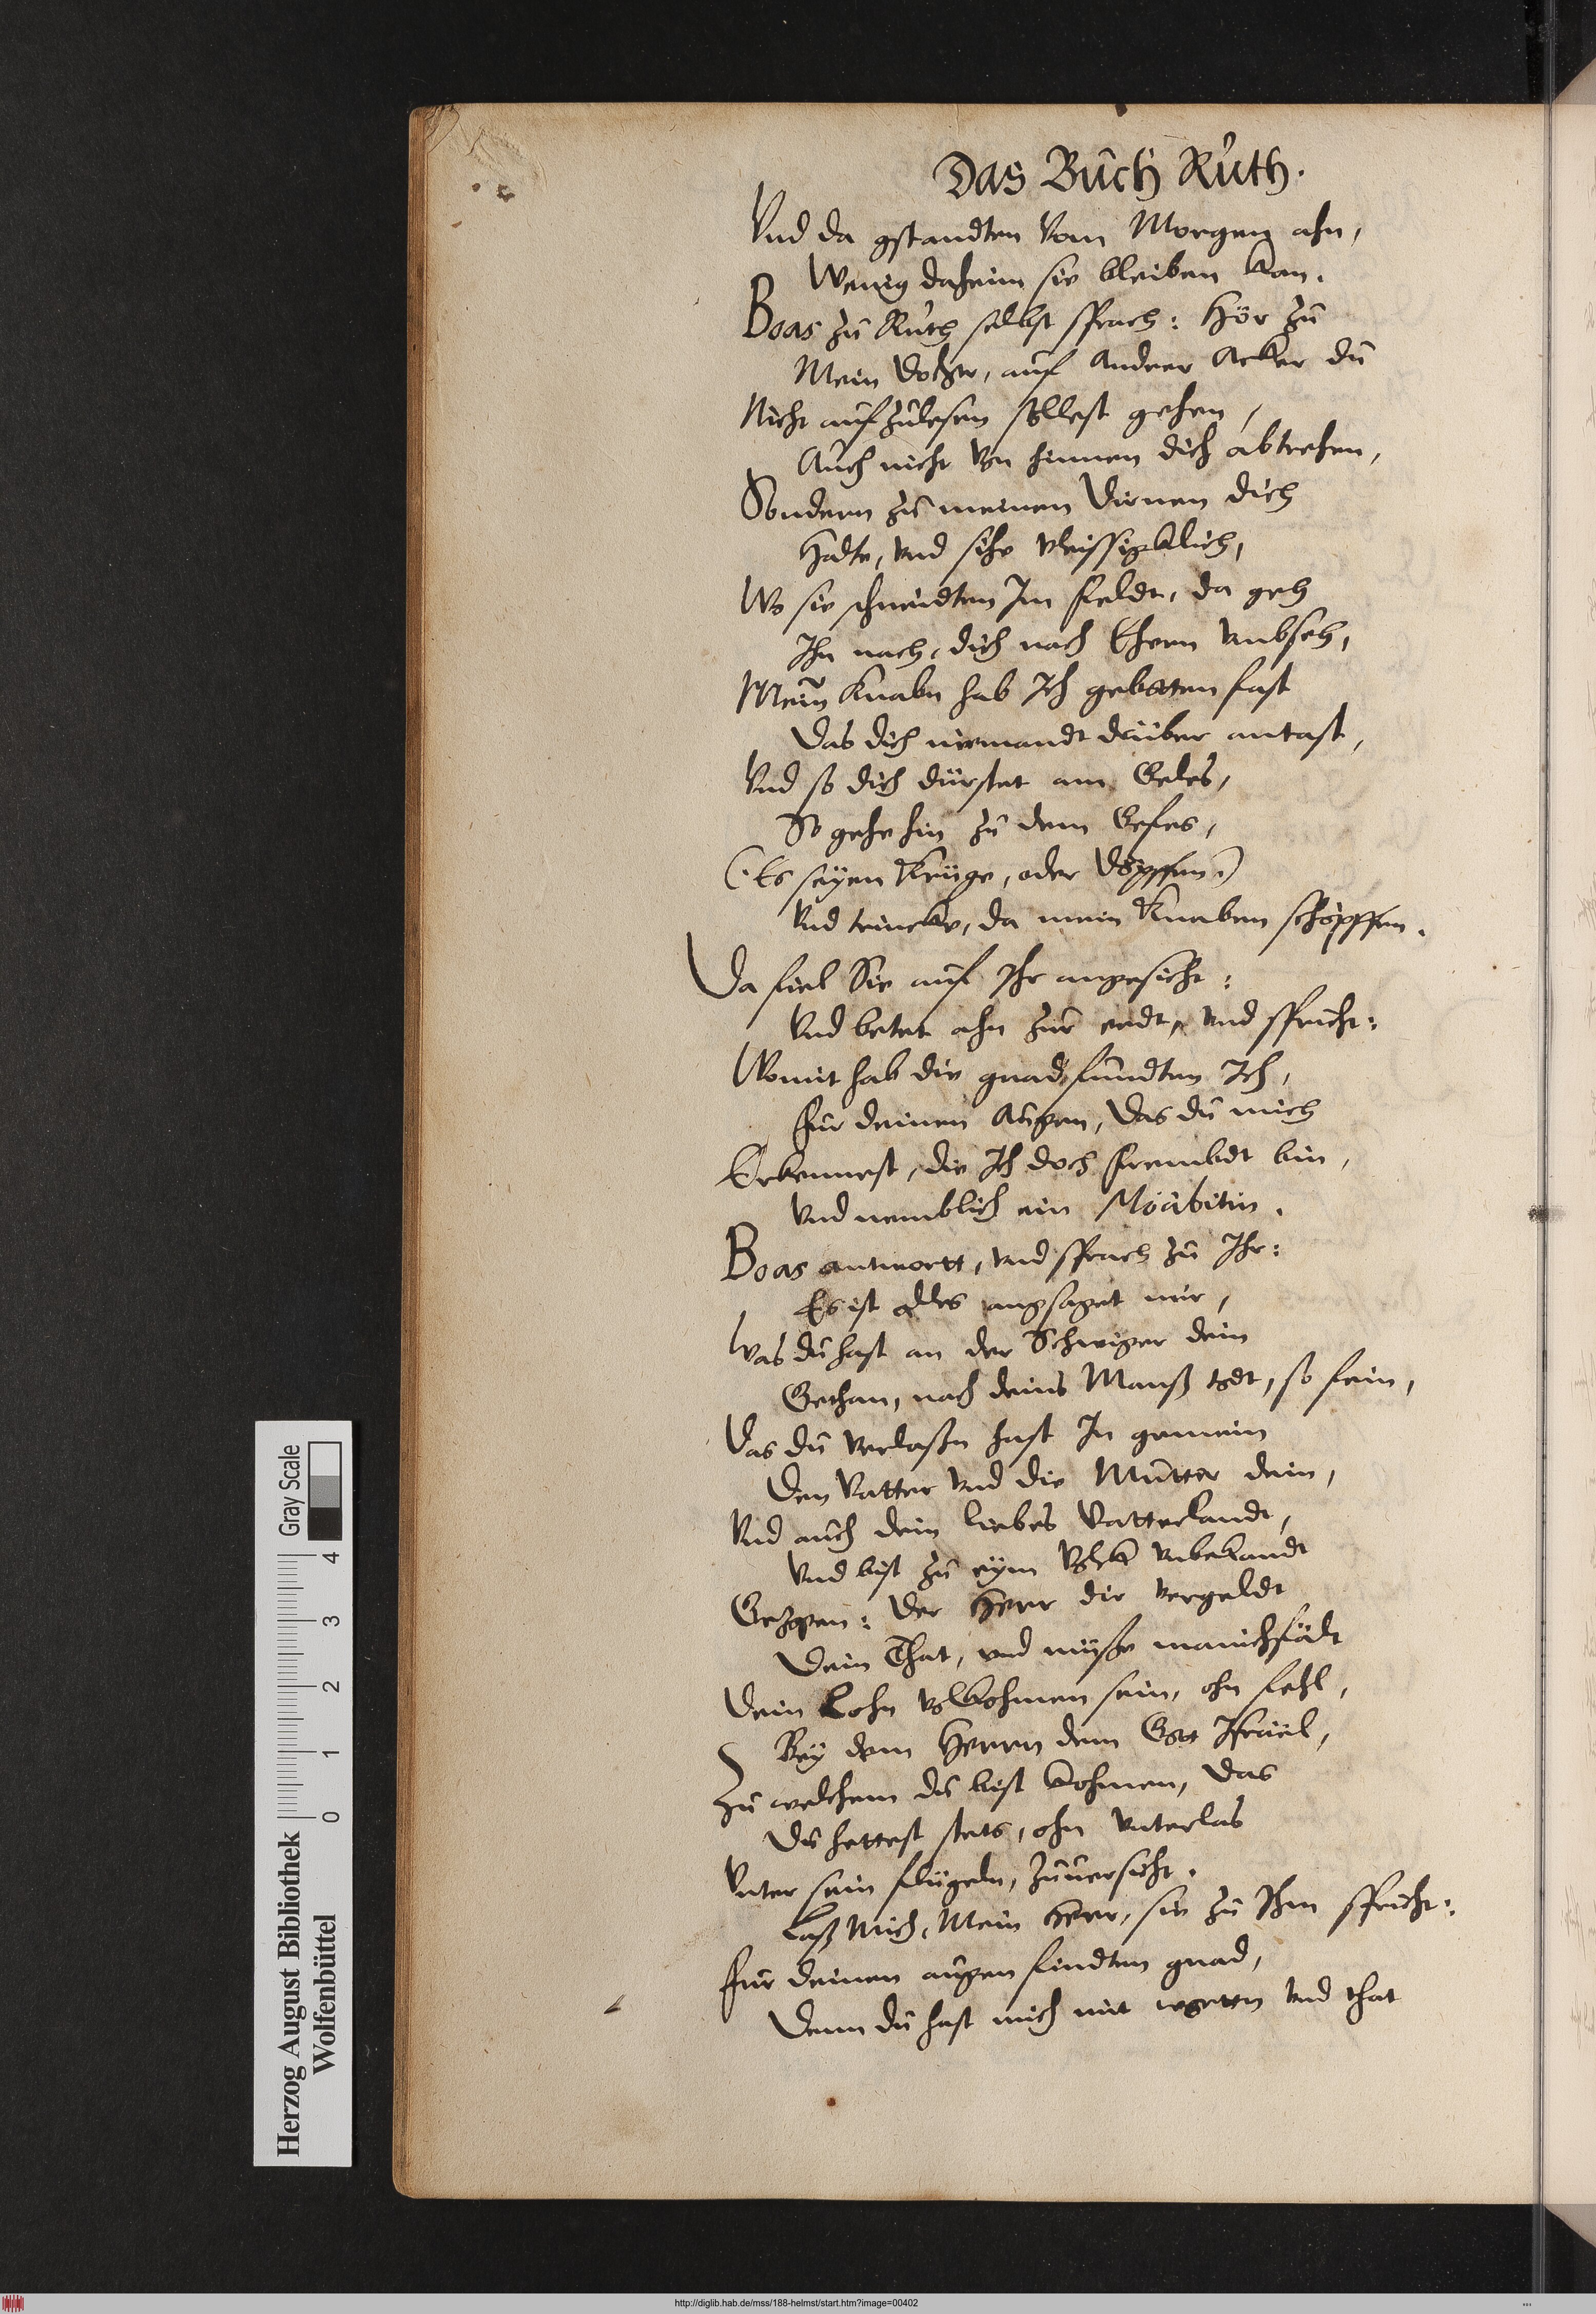 Das Buch Ruth.
Vnd da gstandten vom Morgen ahn,
Wenig daheim sie bleiben kan.
Boas zu Ruth selbst sprach: Hör zu
Mein Dochter, auf Andrer Acker du
Nicht aufzulesen sollest gehen,
Auch nicht von hinnen dich abtrehen,
Sondern zu meinen Dirnen dich
Halte, vnd sihe vleissigklich,
Wo sie schneidten Im feldt, da geh
Ihn nach, dich nach Ehern vmbseh,
Mein Knabn hab Ich gebotten fast
Das dich niemandt drüber antast,
Vnd so dich dürstet am Geles,
So gehe hin zu dem Gefes,
(Es seyen Krüge, oder Döpffen)
Vnd trincke, da mein Knaben schöpffen.
Da fiel Sie auf Ihr angesicht:
Vnd betet ahn zur erdt, vnd spricht:
Womit hab die gnad fundten Ich,
für deinen Augen, das du mich
Erkennest, die Ich doch frembdt bin,
Vnd nemblich ein Moabitin.
Boas antwortt, vnd sprach zu Ihr:
Es ist alles angsaget mir,
Was du hast an der Schwiger dein
Gethan, nach deins Manß todt, so fein,
Das du verlaßn hast In gemein
Den Vatter vnd die Mutter dein,
Vnd auch dein liebes Vatterlandt,
Vnd bist zu eym Volck vnbekandt
Gezogen: Der Herr dir vergeldt
Dein That, vnd müße manichfält
Dein Lohn volkohmen sein, ohn fehl,
Bey dem Herren dem Gott Israel,
Zu welchem du bist kohmen, das
Du hettest stets, ohn vnterlas
Vnter sein flügeln, zuuersicht.
Laß Mich, Mein Herr, sie zu Ihm spricht:
für deinen augen findten gnad,
Denn du hast mich mit wortten vnd that
Herzog August Bibliothek
Wolfenbüttel
0 1 2 3 4
Gray Scale
http://diglib.hab.de/mss/188-helmst/start.htm?image=00402